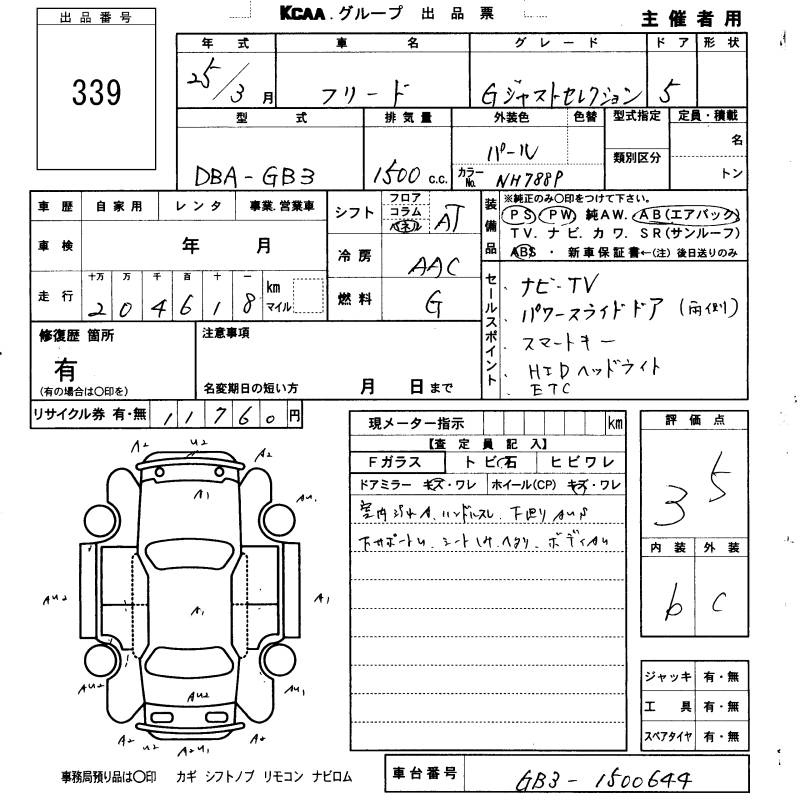 KCAA.グループ 出品票
主催者用
出品番号
339
年式 車名 グレード ドア 形状
25/3月 フリード Gジャストセレクション 5
型式 排気量 外装色 色替 型式指定 定員・積載
DBA-GB3 1500 c.c. パール 類別区分 名
カラーNo. NH788P トン
車歴 自家用 レンタ 事業.営業車
車検 年 月
走行 十万 万 千 百 十 一 km マイル
204618
シフト フロア コラム パネル AT
冷房 AAC
燃料 G
装備品 ※純正のみ〇印をつけて下さい。
PS PW 純AW. AB(エアバック)
TV. ナビ. カワ. SR(サンルーフ)
ABS ・ 新車保証書←(注) 後日送りのみ
セールスポイント
ナビ・TV
パワースライドドア (両側)
スマートキー
HIDヘッドライト
ETC
修復歴 箇所
有
(有の場合は〇印を)
注意事項
名変期日の短い方 月 日まで
リサイクル券 有・無 11760円
現メーター指示 km
【査定員記入】
Fガラス トビ石 ヒビワレ
ドアミラー キズ・ワレ ホイール(CP) キズ・ワレ
室内汚れA. ハンドルスレ. 下回りAUS
下サポートU. シート ヘタリ. ボディAU
評価点
3.5
内装 外装
b C
ジャッキ 有・無
工具 有・無
スペアタイヤ 有・無
A2 U2 A2
A1
AU1
AU2 A1 A1
AU2 AU2 AU1
A2 A2 AU1 A2
事務局預り品は〇印 カギ シフトノブ リモコン ナビロム
車台番号 GB3-1500644